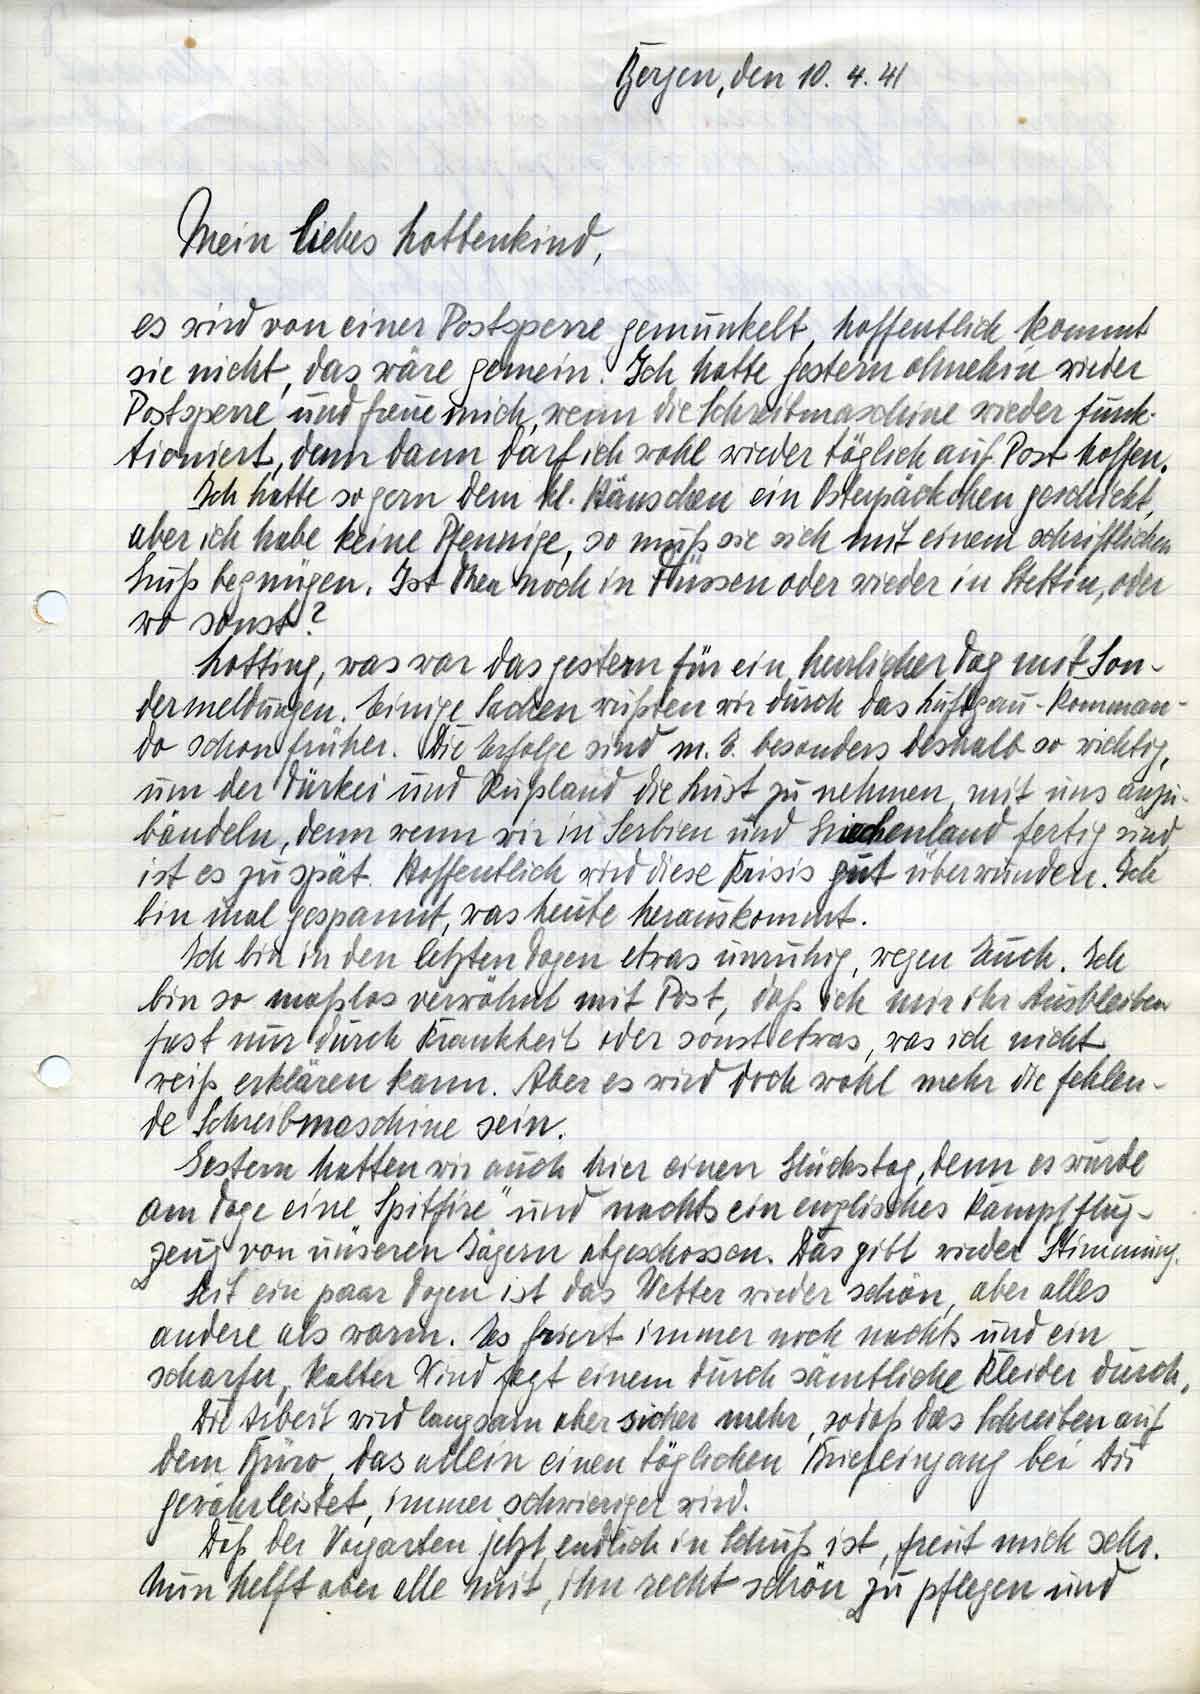 Bergen, den 10. 4. 41
Mein liebes Lottenkind,
es wird von einer Postsperre gemunkelt, hoffentlich kommt
sie nicht, das wäre gemein. Ich hatte gestern ohnehin wieder
Postsperre und freue mich, wenn die Schreibmaschine wieder funk-
tioniert, denn dann darf ich wohl wieder täglich auf Post hoffen.
Ich hätte so gern dem kl. Hänschen ein Osterpäckchen geschickt,
aber ich habe keine Pfennige, so muß sie sich mit einem schriftlichen
Gruß begnügen. Ist noch in Füssen oder wieder in Stettin, oder
wo sonst?
Lotting, was war das gestern für ein herrlicher Tag mit Son-
dermeldungen. Einige Sachen wußten wir durch das Luftgau-Komman-
do schon früher. Die Erfolge sind m. E. besonders deshalb so wichtig,
um der Türkei und Rußland die Lust zu nehmen, mit uns anzu-
bändeln, denn wenn wir in Serbien und Griechenland fertig sind,
ist es zu spät. Hoffentlich wird diese Krisis gut überwunden. Ich
bin mal gespannt, was heute herauskommt.
Ich bin in den letzten Tagen etwas unruhig, wegen Euch. Ich
bin so maßlos verwöhnt mit Post, daß ich mir ihr Ausbleiben
fast nur durch Krankheit oder sonst etwas, was ich nicht
weiß erklären kann. Aber es wird doch wohl mehr die fehlen-
de Schreibmaschine sein.
Gestern hatten wir auch hier einen Glückstag, denn es wurde
am Tage eine "Spitfire" und nachts ein englisches Kampfflug-
zeug von unseren Jägern abgeschossen. Das gibt wieder Stimmung.
Seit ein paar Tagen ist das Wetter wieder schön, aber alles
andere als warm. Es friert immer noch nachts und ein
scharfer, kalter Wind fegt einem durch sämtliche Kleider durch.
Die Arbeit wird langsam aber sicher mehr, sodaß das Schreiben auf
dem Büro, das allein einen täglichen Briefeingang bei Dir
gewährleistet, immer schwieriger wird.
Daß der Vorgarten jetzt endlich in Schuß ist, freut mich sehr.
Nun helft aber alle mit, ihn recht schön zu pflegen und